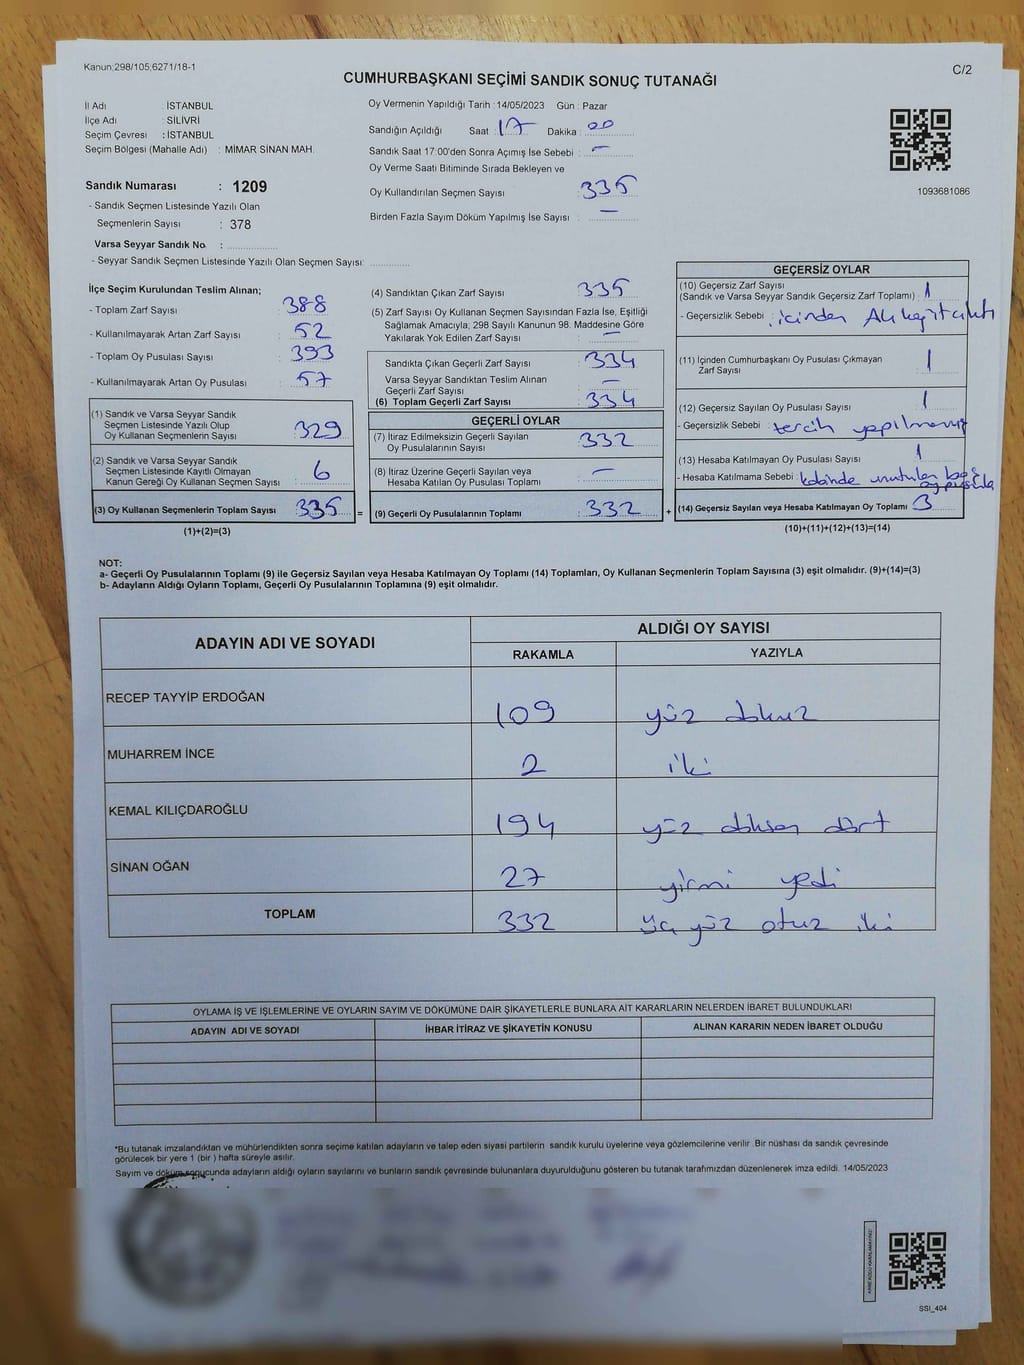 Kanun;298/105;6271/18-1
C/2
CUMHURBAŞKANI SEÇİMİ SANDIK SONUÇ TUTANAĞI
İl Adı : İSTANBUL
İlçe Adı : SİLİVRİ
Seçim Çevresi : İSTANBUL
Seçim Bölgesi (Mahalle Adı) : MİMAR SİNAN MAH.
Sandık Numarası : 1209
- Sandık Seçmen Listesinde Yazılı Olan
Seçmenlerin Sayısı : 378
Varsa Seyyar Sandık No :
- Seyyar Sandık Seçmen Listesinde Yazılı Olan Seçmen Sayısı:
Oy Vermenin Yapıldığı Tarih : 14/05/2023 Gün : Pazar
Sandığın Açıldığı Saat : 17 Dakika : 00
Sandık Saat 17:00'den Sonra Açımış İse Sebebi : -
Oy Verme Saati Bitiminde Sırada Bekleyen ve
Oy Kullandırılan Seçmen Sayısı 335
Birden Fazla Sayım Döküm Yapılmış İse Sayısı : -
1093681086
İlçe Seçim Kurulundan Teslim Alınan;
- Toplam Zarf Sayısı : 388
- Kullanılmayarak Artan Zarf Sayısı : 52
- Toplam Oy Pusulası Sayısı : 393
- Kullanılmayarak Artan Oy Pusulası : 57
(1) Sandık ve Varsa Seyyar Sandık
Seçmen Listesinde Yazılı Olup
Oy Kullanan Seçmenlerin Sayısı : 329
(2) Sandık ve Varsa Seyyar Sandık
Seçmen Listesinde Kayıtlı Olmayan
Kanun Gereği Oy Kullanan Seçmen Sayısı : 6
(3) Oy Kullanan Seçmenlerin Toplam Sayısı : 335 =
(1)+(2)=(3)
(4) Sandıktan Çıkan Zarf Sayısı : 335
(5) Zarf Sayısı Oy Kullanan Seçmen Sayısından Fazla İse, Eşitliği
Sağlamak Amacıyla; 298 Sayılı Kanunun 98. Maddesine Göre
Yakılarak Yok Edilen Zarf Sayısı : -
Sandıkta Çıkan Geçerli Zarf Sayısı : 334
Varsa Seyyar Sandıktan Teslim Alınan
Geçerli Zarf Sayısı : -
(6) Toplam Geçerli Zarf Sayısı : 334
GEÇERLİ OYLAR
(7) İtiraz Edilmeksizin Geçerli Sayılan
Oy Pusulalarının Sayısı : 332
(8) İtiraz Üzerine Geçerli Sayılan veya
Hesaba Katılan Oy Pusulası Toplamı : -
(9) Geçerli Oy Pusulalarının Toplamı : 332 +
GEÇERSİZ OYLAR
(10) Geçersiz Zarf Sayısı
(Sandık ve Varsa Seyyar Sandık Geçersiz Zarf Toplamı) : 1
- Geçersizlik Sebebi : içinden
(11) İçinden Cumhurbaşkanı Oy Pusulası Çıkmayan
Zarf Sayısı : 1
(12) Geçersiz Sayılan Oy Pusulası Sayısı : 1
- Geçersizlik Sebebi : tercih yapılmamış
(13) Hesaba Katılmayan Oy Pusulası Sayısı : 1
- Hesaba Katılmama Sebebi : kabinde unutulan boş
oy pusula
(14) Geçersiz Sayılan veya Hesaba Katılmayan Oy Toplamı : 3
(10)+(11)+(12)+(13)=(14)
NOT:
a- Geçerli Oy Pusulalarının Toplamı (9) ile Geçersiz Sayılan veya Hesaba Katılmayan Oy Toplamı (14) Toplamları, Oy Kullanan Seçmenlerin Toplam Sayısına (3) eşit olmalıdır. (9)+(14)=(3)
b- Adayların Aldığı Oyların Toplamı, Geçerli Oy Pusulalarının Toplamına (9) eşit olmalıdır.
ADAYIN ADI VE SOYADI ALDIĞI OY SAYISI
RAKAMLA YAZIYLA
RECEP TAYYİP ERDOĞAN 109 yüz dokuz
MUHARREM İNCE 2 iki
KEMAL KILIÇDAROĞLU 194 yüz doksan dört
SİNAN OĞAN 27 yirmi yedi
TOPLAM 332 üç yüz otuz iki
OYLAMA İŞ VE İŞLEMLERİNE VE OYLARIN SAYIM VE DÖKÜMÜNE DAİR ŞİKAYETLERLE BUNLARA AİT KARARLARIN NELERDEN İBARET BULUNDUKLARI
ADAYIN ADI VE SOYADI İHBAR İTİRAZ VE ŞİKAYETİN KONUSU ALINAN KARARIN NEDEN İBARET OLDUĞU
*Bu tutanak imzalandıktan ve mühürlendikten sonra seçime katılan adayların ve talep eden siyasi partilerin sandık kurulu üyelerine veya gözlemcilerine verilir. Bir nüshası da sandık çevresinde
görülecek bir yere 1 (bir ) hafta süreyle asılır.
Sayım ve döküm sonucunda adayların aldığı oyların sayılarını ve bunların sandık çevresinde bulunanlara duyurulduğunu gösteren bu tutanak tarafımızdan düzenlenerek imza edildi. 14/05/2023
SSI_404